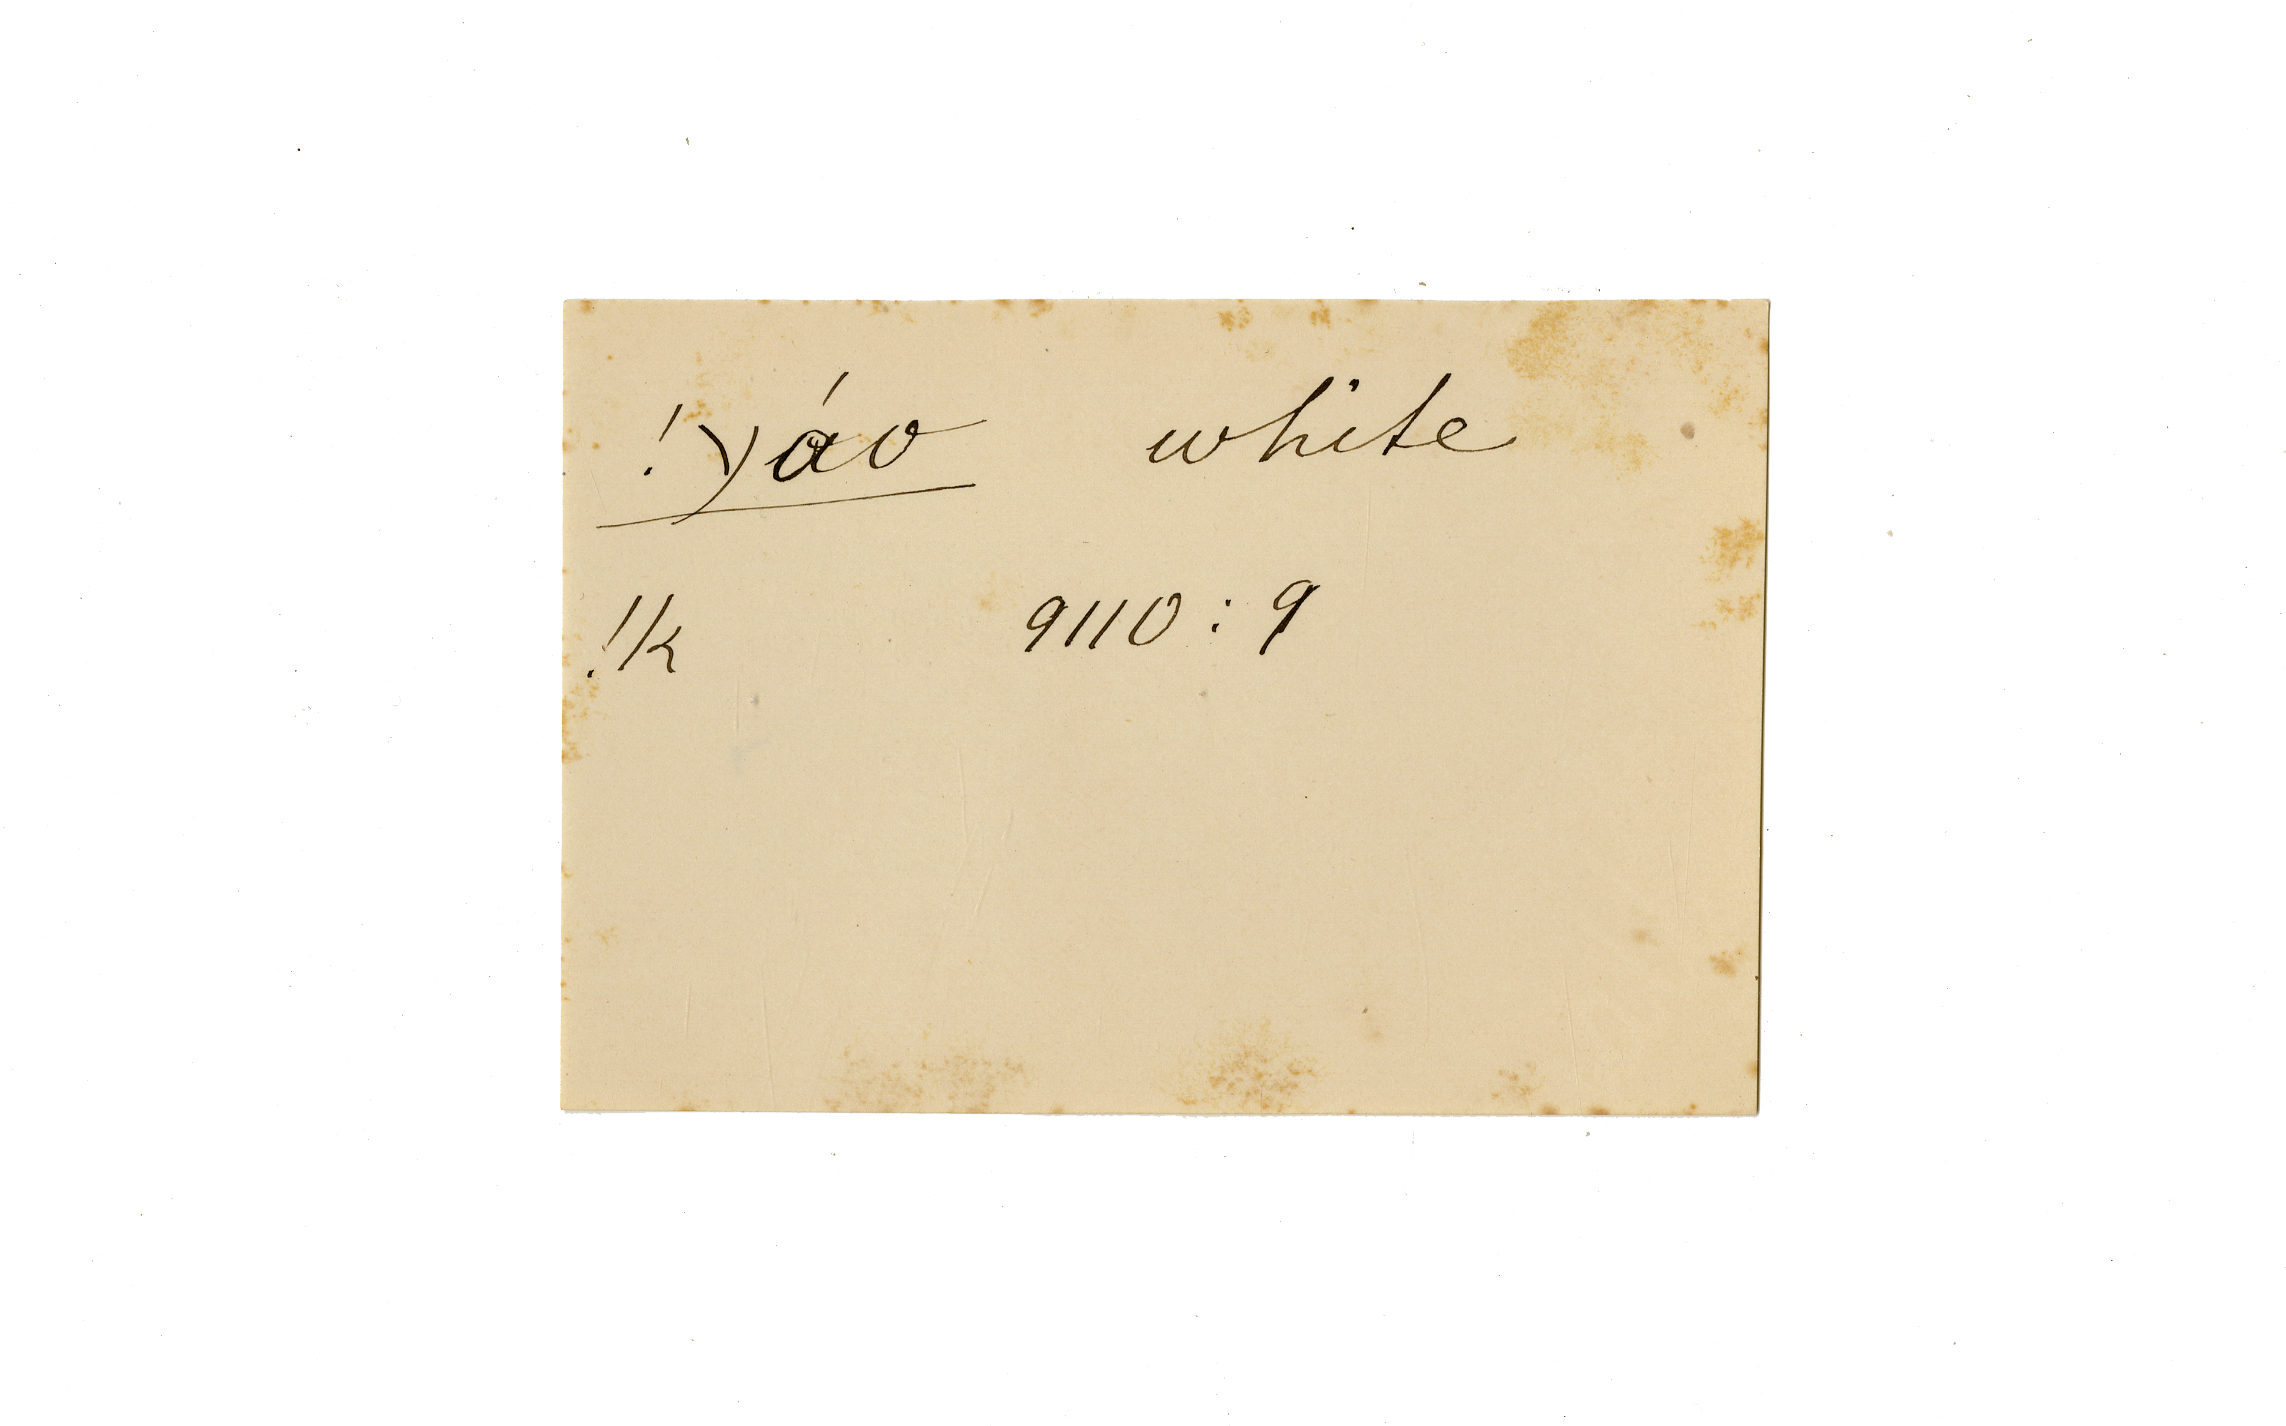 !χáo white
!k 9110 : 9